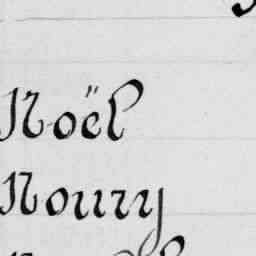 Noël
Noury